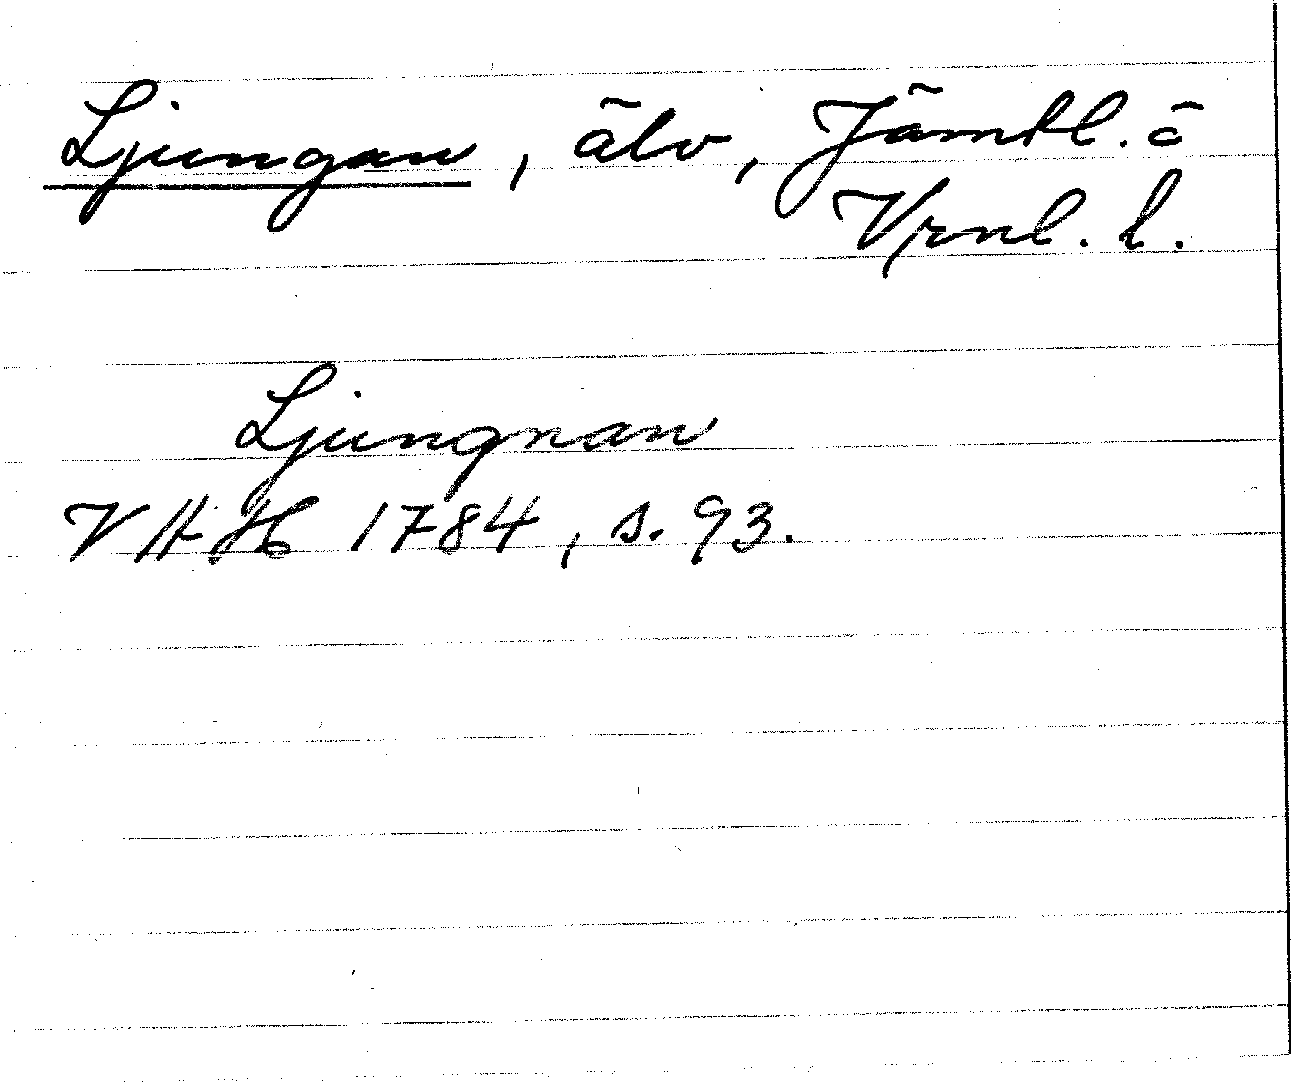 Ljungan, älv, Jämtl. o
Vrnl. l.
Ljungnan
VHAH 1784, s. 93.